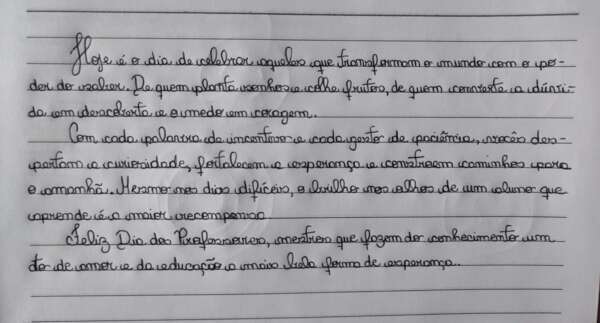 Hoje é o dia de celebrar aqueles que transformam o mundo com o po-
der do saber. De quem planta sonhos e colhe frutos, de quem converte a dúvi-
da em descoberta e o medo em coragem.
Com cada palavra de incentivo e cada gesto de paciência, vocês des-
pertam a curiosidade, fortalecem a esperança e constroem caminhos para
o amanhã. Mesmo nos dias difíceis, o brilho nos olhos de um aluno que
aprende é a maior recompensa.
Feliz Dia dos Professores, mestres que fazem do conhecimento um
to de amor e da educação a mais bela forma de esperança.